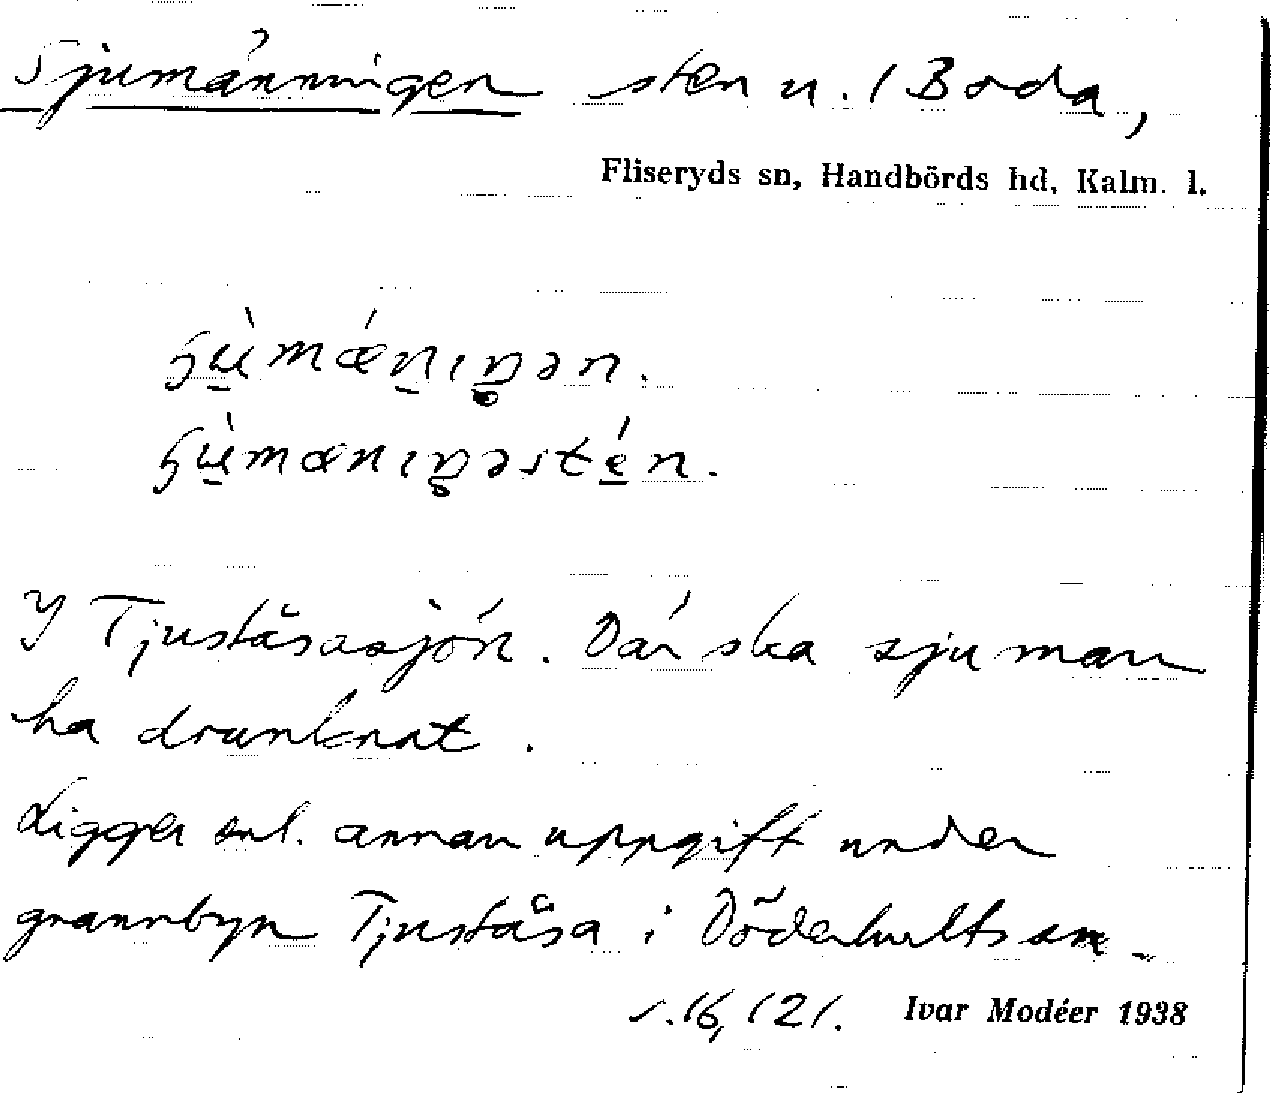 Sjumänningen sten u. 1 Boda,
Fliseryds sn, Handbörds hd, Kalm. l.
I Tjuståsasjön. Där ska sju man
ha drunknat.
Ligger enl. annan uppgift under
grannbyn Tjuståsa i Döderhults sn.
s. 16, 121. Ivar Modéer 1938